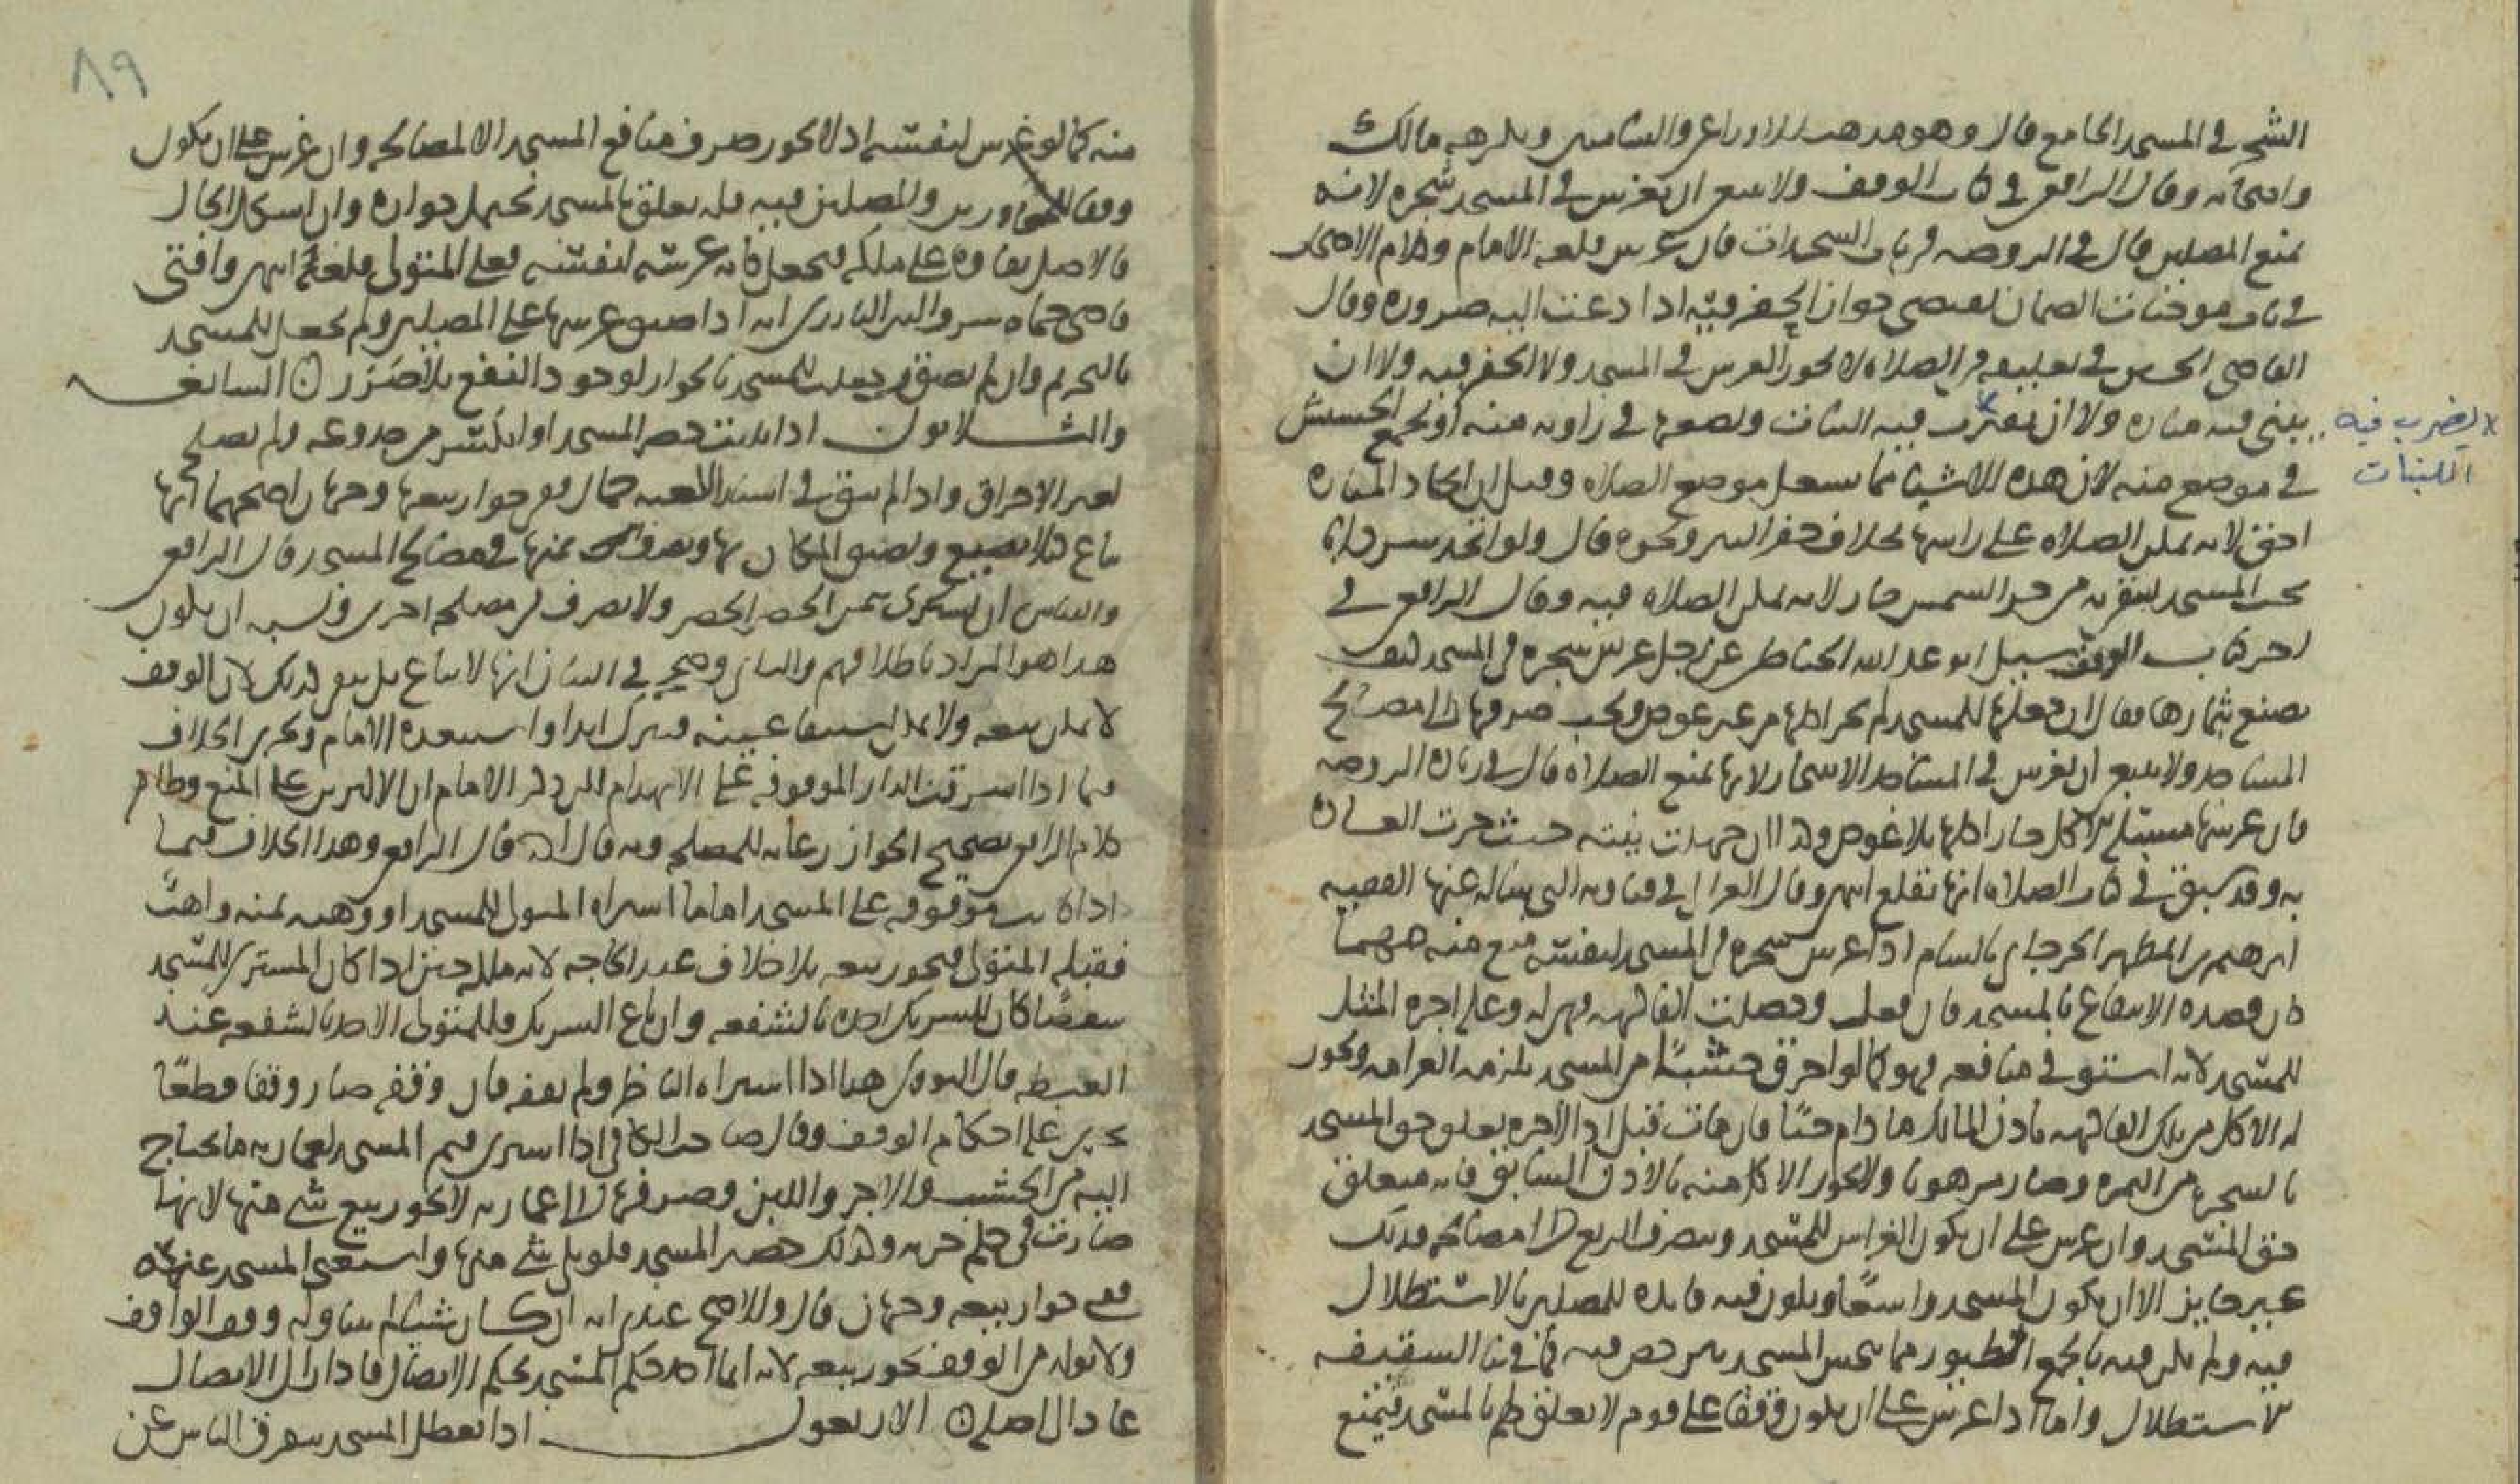 الشجر في المسجد الجامع قال وهو مذهب الاوزاعي والشافعي ويكرهه مالك
واصحابه وقال الرافعي في كتاب الوقف ولا ينبغي ان يغرس في المسجد شجرة لانه
يمنع المصلين قال في الروضة في باب السجدات فان غرس قلعه الامام وكلام الاصحاب
في باب موجبات الضمان يقتضي جواز الحفر فيه اذا دعت اليه ضرورة وقال
القاضي الحسين في تعليقه في الصلاة لا يجوز الغرس في المسجد ولا الحفر فيه ولا ان
يبني فيه منارة ولا ان يضرب فيه اللبنات ويضعها في زاوية منه او يجمع الحشيش
لا يضرب فيه
اللبنات
في موضع منه لان هذه الاشيا مما يشغل موضع الصلاة وقيل ان اتخاذ المنارة
اخف لانه يمكن الصلاة على راسها بخلاف حفر البير ونحوه قال ولو اتخذ سردابا
تحت المسجد ليتقى به من حر الشمس جاز لانه يمكن الصلاة فيه وقال الرافعي في
اخر كتاب الوقف سيل ابو عبد الله الحناطي عن رجل غرس شجرة في المسجد كيف
يصنع بثمارها فقال ان جعلها للمسجد لم يجز اكلها من غير عوض ويجب صرفها الى مصالح
المساجد ولا ينبغي ان يغرس في المساجد الاشجار لانها تمنع الصلاة قال في زيادة الروضة
فان غرسها مسبلة للاكل جاز اكلها بلا عوض وكذا ان جهلت نيته حيث جرت العادة
به وقد سبق في كتاب الصلاة انها تقلع انتهى وقال الغزالي في فتاويه التي ساله عنها الفقيه
ابرهيم بن المطهر الجرجاني بالشام اذا غرس شجرة في المسجد لنفسه منع منه مهما
كان قصده الانتفاع بالمسجد فان فعل وحصلت الفاكهة فهي له وعليه اجرة المثل
للمسجد لانه استوفى منافعه فهو كما لو احرق خشبا من المسجد يلزمه الغرامه ويجوز
له الاكل من تلك الفاكهة باذن المالك ما دام حيا فان مات قبل ادا الاجرة تعلق حق المسجد
بالشجرة من الثمرة وصار مرهونا ولا يجوز الاكل منه بالاذن السابق فانه متعلق
حق المسجد وان غرس على ان يكون الغراس للمسجد ويصرف الريع الى مصالحه فذلك
غير جايز الا ان يكون المسجد واسعا ويكون فيه فايدة للمصلين بالاستظلال
فيه ولم يكن فيه ما يجمع الطيور مما ينجس المسجد يرخص فيه كما في بنا السقيفة
للاستظلال واما اذا غرس على ان يكون وقفا على قوم لا تعلق لهم بالمسجد فيمنع
٨٩
منه كما لو غرس لنفسه اذ لا يجوز صرف منافع المسجد الا لمصالحه وان غرس على ان يكون
وقفا للمجاورين والمصلين فيه فله تعلق بالمسجد يحتمل جوازه وان اشكل الحال
فالاصل بقاوه على ملكه فيجعل كانه غرسه لنفسه فعلى المتولي قلعه انتهى وافتى
قاضي حماه شرف الدين البارزي انه اذا ضيق غرسها على المصلين ولم تجعل للمسجد
بالتحريم وان لم تضق وجعلت للمسجد بالجواز لوجود النفع بلا ضرر ن السابعه
والثلاثون اذا بليت حصر المسجد او انكسر من جذوعه ولم يصلح
لغير الاحراق واذا لم يبق في استار الكعبة جمال ففي جواز بيعها وجهان اصحهما انها
تباع كيلا تضيع ويضيق المكان بها ويصرف ثمنها في مصالح المسجد قال الرافعي
والقياس ان يشترى بثمن الحصر الحصر ولا يصرف في مصلحة اخرى ويشبه ان يكون
هذا هو المراد باطلاقهم والثاني وصحح في البيان انها لا تباع بل تبقى كذلك لان الوقف
لا يمكن بيعه ولا يمكن استيفا عينه فيترك ابدا واستبعده الامام ويجري الخلاف
فيما اذا اشرفت الدار الموقوفة على الانهدام لكن ذكر الامام ان الاكثرين على المنع وظاهر
كلام الرافعي تصحيح الجواز رعاية للمصلحة وبه قال قال الرافعي وهذا الخلاف فيما
اذا كانت موقوفه على المسجد اما ما اشتراه المتولي للمسجد او وهبه منه واهب
فقبله المتولي فيجوز بيعه بلا خلاف عند الحاجة لانه ملك حتى اذا كان المشترى للمسجد
شقصا كان للشريك اخذه بالشفعة وان باع الشريك فللمتولي الاخذ بالشفعة عند
الغبطة قال النووي هذا اذا اشتراه الناظر ولم يقفه فان وقفه صار وقفا قطعا
تجري عليه احكام الوقف وقال صاحب الكافي اذا اشترى قيم المسجد لعمارته ما يحتاج
اليه من الخشب والاجر واللبن وصرفها الى عمارته لا يجوز بيع شي منها لانها
صارت في حكم جزيه وكذلك حصر المسجد فلو بلي شي منها واستغنى المسجد عنه
ففي جواز بيعه وجهان قال والاصح عندي انه ان كان شيا لم يتناوله وقف الواقف
ولا تولد من الوقف يجوز بيعه لانه انما اخذ حكم المسجد بحكم الاتصال فاذا زال الاتصال
عاد الى اصله ن الاربعون اذا تعطل المسجد بتفرق الناس عن